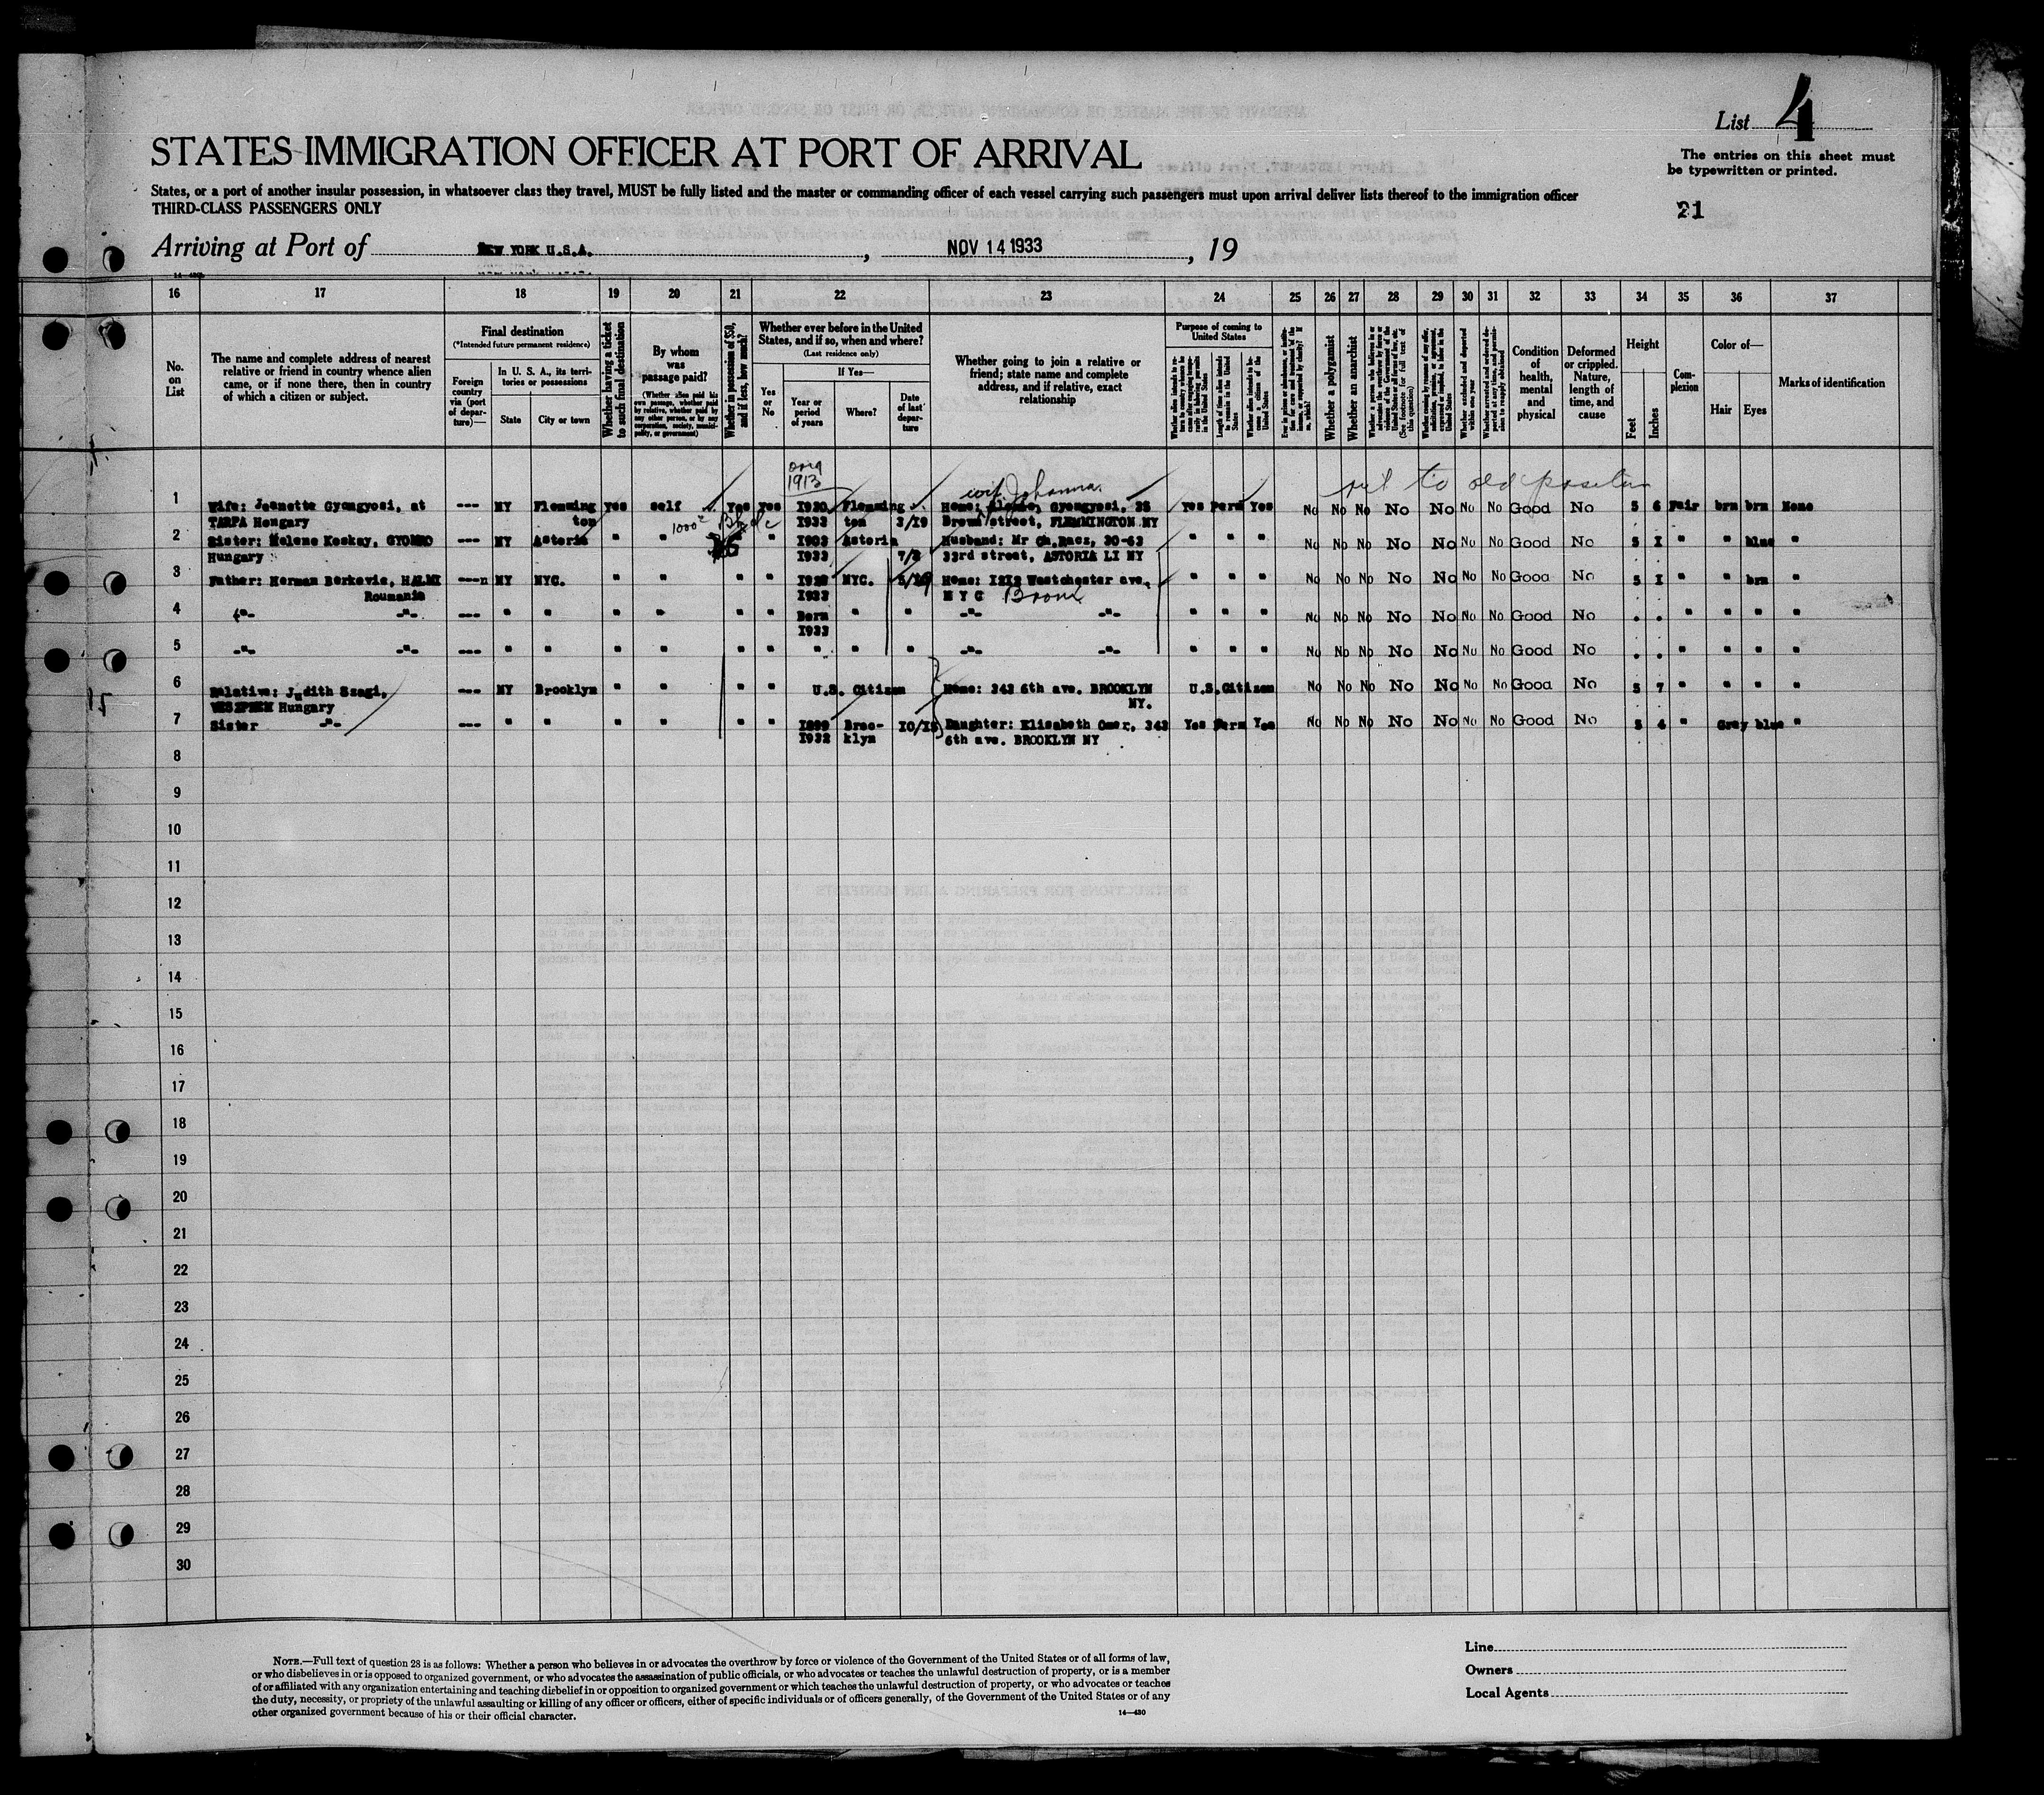 List 4
STATES IMMIGRATION OFFICER AT PORT OF ARRIVAL
The entries on this sheet must
be typewritten or printed.
States, or a port of another insular possession, in whatsoever class they travel, MUST be fully listed and the master or commanding officer of each vessel carrying such passengers must upon arrival deliver lists thereof to the immigration officer
THIRD-CLASS PASSENGERS ONLY
21
Arriving at Port of NEW YORK U.S.A., NOV 14 1933, 19
16 17 18 19 20 21 22 23 24 25 26 27 28 29 30 31 32 33 34 35 36 37
No. on List
The name and complete address of nearest relative or friend in country whence alien came, or if none there, then in country of which a citizen or subject.
Final destination
(*Intended future permanent residence)
Foreign country via (port of departure)—
In U. S. A., its territories or possessions
State
City or town
Whether having a ticket to such final destination
By whom was passage paid?
(Whether alien paid his own passage, whether paid by relative, whether paid by any other person, or by any corporation, society, municipality, or government)
Whether in possession of $50, and if less, how much?
Whether ever before in the United States, and if so, when and where?
(Last residence only)
Yes or No
If Yes—
Year or period of years
Where?
Date of last departure
Whether going to join a relative or friend; state name and complete address, and if relative, exact relationship
Purpose of coming to United States
Whether alien intends to become a citizen of the United States
Whether a polygamist
Whether an anarchist
Condition of health, mental and physical
Deformed or crippled. Nature, length of time, and cause
Height
Feet
Inches
Complexion
Color of—
Hair
Eyes
Marks of identification
orig
1913
wife Johanna
ret to old position
1 Wife: Jeanette Gyongyosi, at --- NY Flemming yes self yes yes 1930 Flemming Home: Gyongyosi, 28 Yes Perm Yes No No No No No No No Good No 5 6 Fair brn brn None
TARPA Hungary ton 1000 1933 ton 3/19 Brown street, FLEMMINGTON NY
2 Sister: Helene Keskay, GYOMRO --- NY Astoria " " " " 1903 Astoria Husband: Mr Ch. Racz, 30-63 " " " No No No No No No No Good No 5 I " " blue "
Hungary 1933 7/3 33rd street, ASTORIA LI NY
3 Father: Herman Berkovic, HALMI NY NYC. " " " " NYC. Home: 1212 Westchester ave. " " " No No No No No No No Good No 5 I " " brn "
Roumania 1933 N Y C Bronx
4 -"- -"- --- " " " " " " Born " " -"- -"- " " " No No No No No No No Good No . . " " " "
1933
5 -"- -"- --- " " " " " " " " " -"- -"- " " " No No No No No No No Good No . . " " " "
6 Relative: Judith Szegi, --- NY Brooklyn " " " " U.S. Citizen Home: 343 6th ave. BROOKLYN U.S.Citizen No No No No No No No Good No 5 7 " " " "
VESZPREM Hungary NY.
7 Sister -"- --- " " " " " " 1899 Broo- Daughter: Elisabeth Omer, 343 Yes Perm Yes No No No No No No No Good No 5 4 " Grey blue "
1932 klyn 6th ave. BROOKLYN NY
8
9
10
11
12
13
14
15
16
17
18
19
20
21
22
23
24
25
26
27
28
29
30
NOTE.—Full text of question 28 is as follows: Whether a person who believes in or advocates the overthrow by force or violence of the Government of the United States or of all forms of law,
or who disbelieves in or is opposed to organized government, or who advocates the assassination of public officials, or who advocates or teaches the unlawful destruction of property, or is a member
of or affiliated with any organization entertaining and teaching disbelief in or opposition to organized government or which teaches the unlawful destruction of property, or who advocates or teaches
the duty, necessity, or propriety of the unlawful assaulting or killing of any officer or officers, either of specific individuals or of officers generally, of the Government of the United States or of any
other organized government because of his or their official character.
14—480
Line
Owners
Local Agents